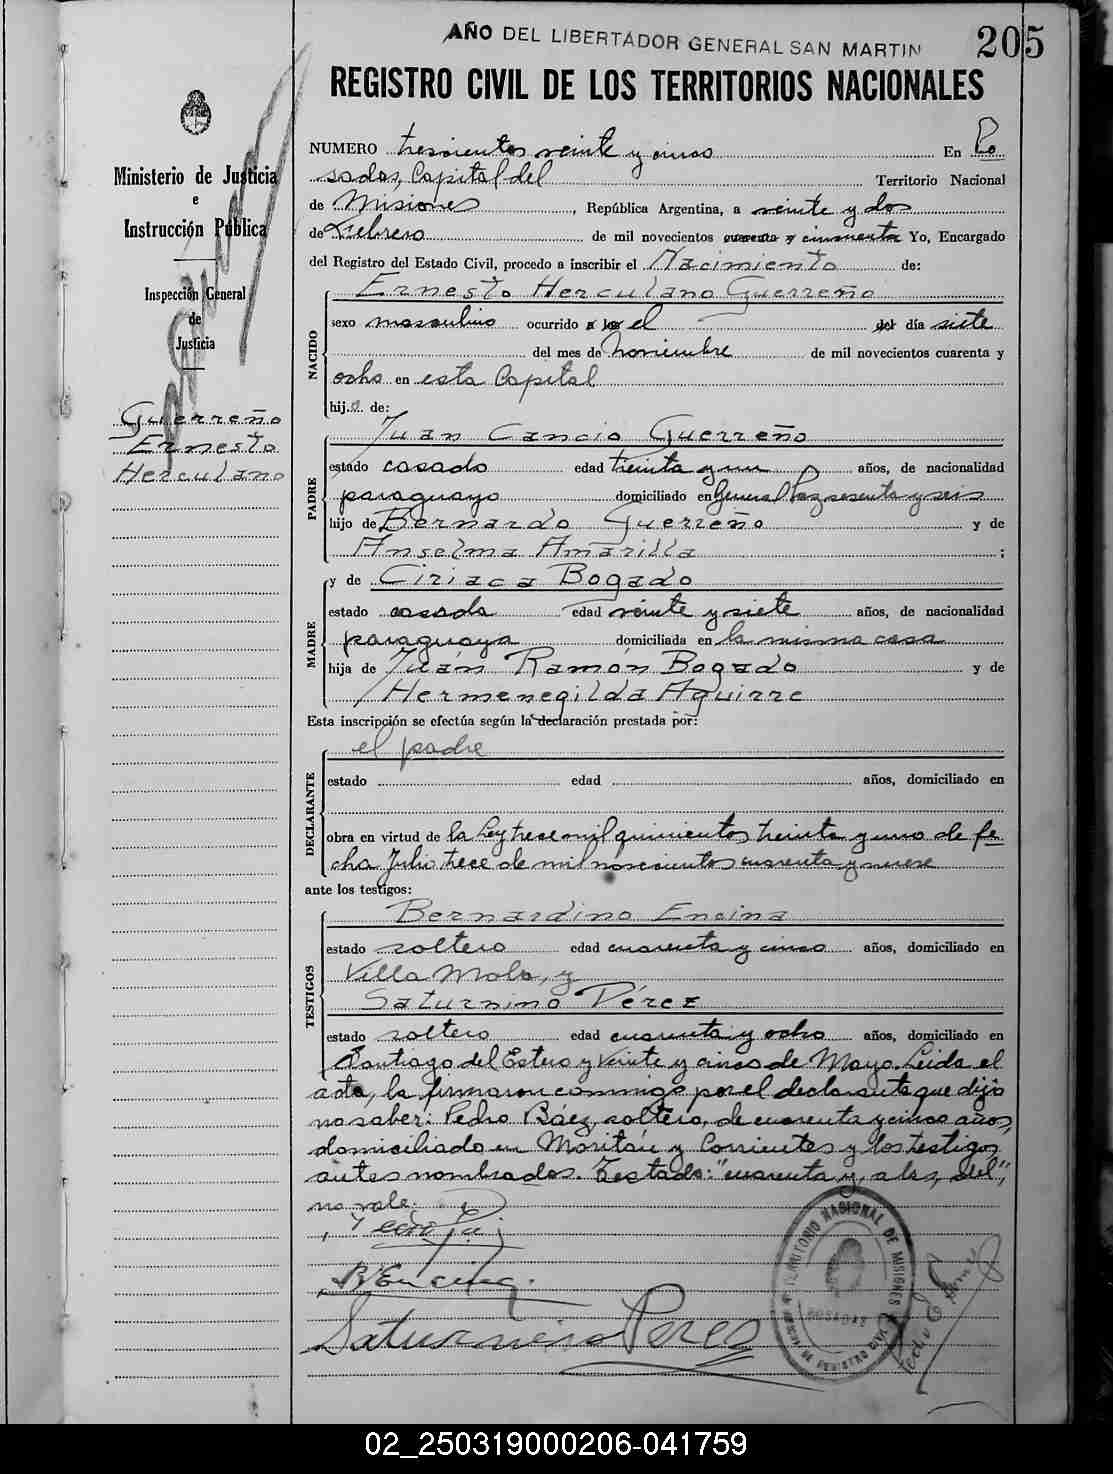 AÑO DEL LIBERTADOR GENERAL SAN MARTIN
205
REGISTRO CIVIL DE LOS TERRITORIOS NACIONALES
Ministerio de Justicia
e
Instrucción Pública
Inspección General
de
Justicia
Guerreño
Ernesto
Herculano
NUMERO trescientos veinte y cinco En Po
sadas, Capital del Territorio Nacional
de Misiones, República Argentina, a veinte y dos
de Febrero de mil novecientos cuarenta y cincuenta Yo, Encargado
del Registro del Estado Civil, procedo a inscribir el Nacimiento de:
NACIDO
Ernesto Herculano Guerreño
sexo masculino ocurrido a las el del día siete
del mes de Noviembre de mil novecientos cuarenta y
ocho en esta Capital
hijo de:
PADRE
Juan Cancio Guerreño
estado casado edad treinta y un años, de nacionalidad
paraguayo domiciliado en General Paz sesenta y seis
hijo de Bernardo Guerreño y de
Anselma Amarilla ;
MADRE
y de Ciriaca Bogado
estado casada edad veinte y siete años, de nacionalidad
paraguaya domiciliada en la misma casa
hija de Juán Ramón Bogado y de
Hermenegilda Aguirre
Esta inscripción se efectúa según la declaración prestada por:
DECLARANTE
el padre
estado edad años, domiciliado en
obra en virtud de la Ley trece mil quinientos treinta y uno de fe
cha Julio trece de mil novecientos cuarenta y nueve
ante los testigos:
TESTIGOS
Bernardino Encina
estado soltero edad cuarenta y cinco años, domiciliado en
Villa Mola, y
Saturnino Pérez
estado soltero edad cuarenta y ocho años, domiciliado en
Santiago del Estero y Veinte y cinco de Mayo. Leida el
acta, la firmaron conmigo por el declarante que dijo
no saber: Pedro Báez, soltero, de cuarenta y cinco años,
domiciliado en Moritán y Corrientes y los testigos
antes nombrados. Testado: "cuarenta y, a las, del",
no vale.
B Encina.
Saturnino Perez
TERRITORIO NACIONAL DE MISIONES
POSADAS
DE REGISTRO CIVIL
02_250319000206-041759